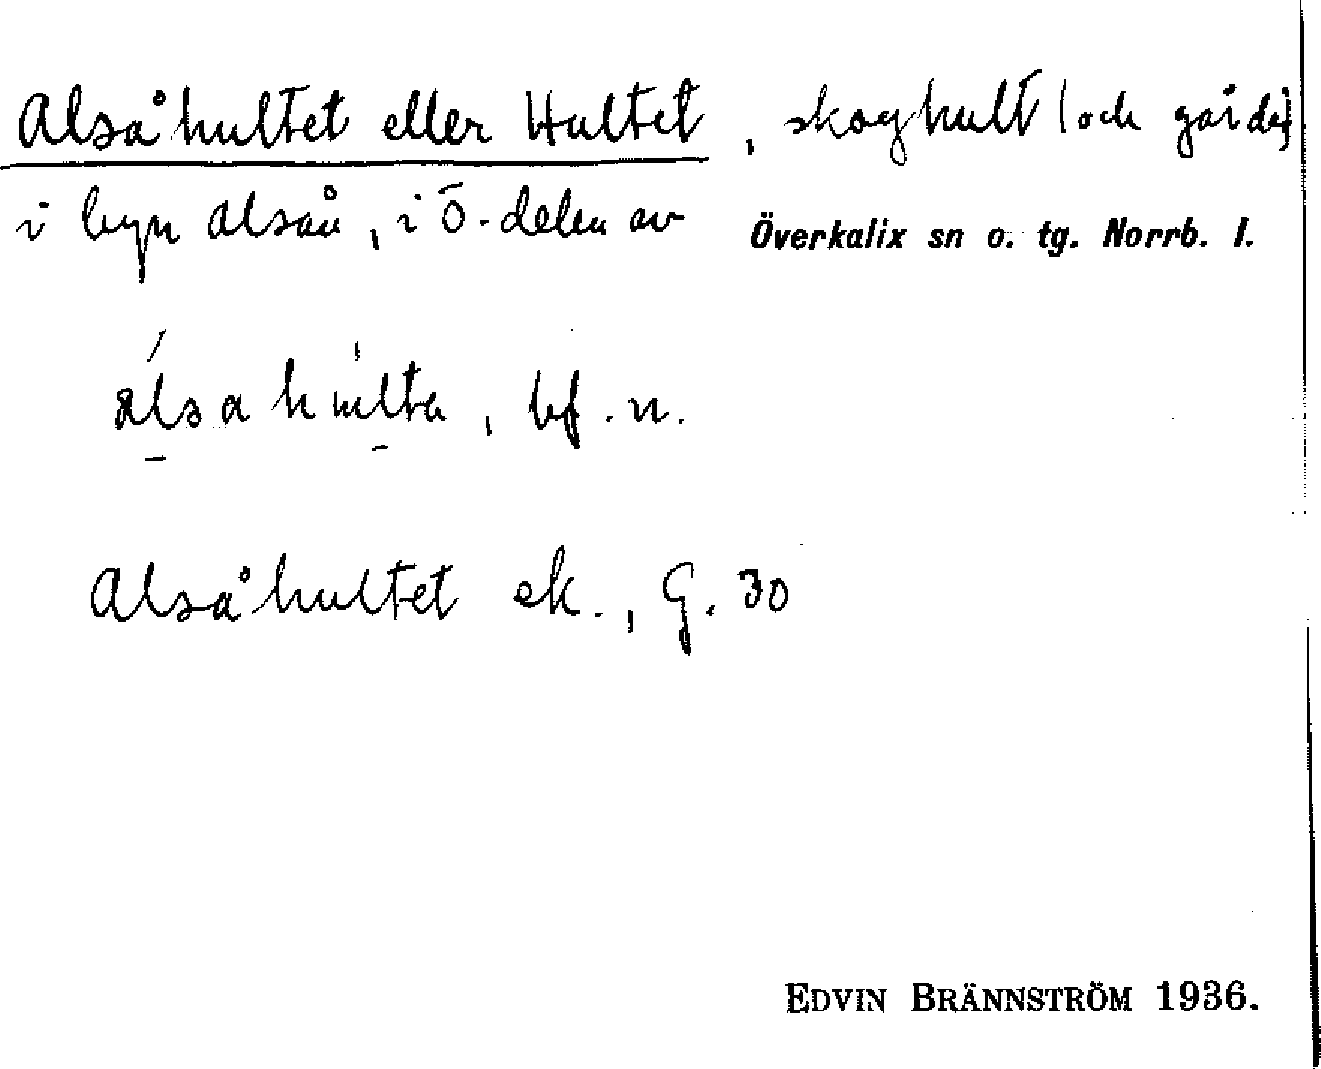 Alsåhultet eller Hultet, skoghult (och gårdar)
i byn Alsån, i ö-delen av Överkalix sn o. tg. Norrb. l.
alsahulta, bf. n.
Alsåhultet ek., G. 30
EDVIN BRÄNNSTRÖM 1936.